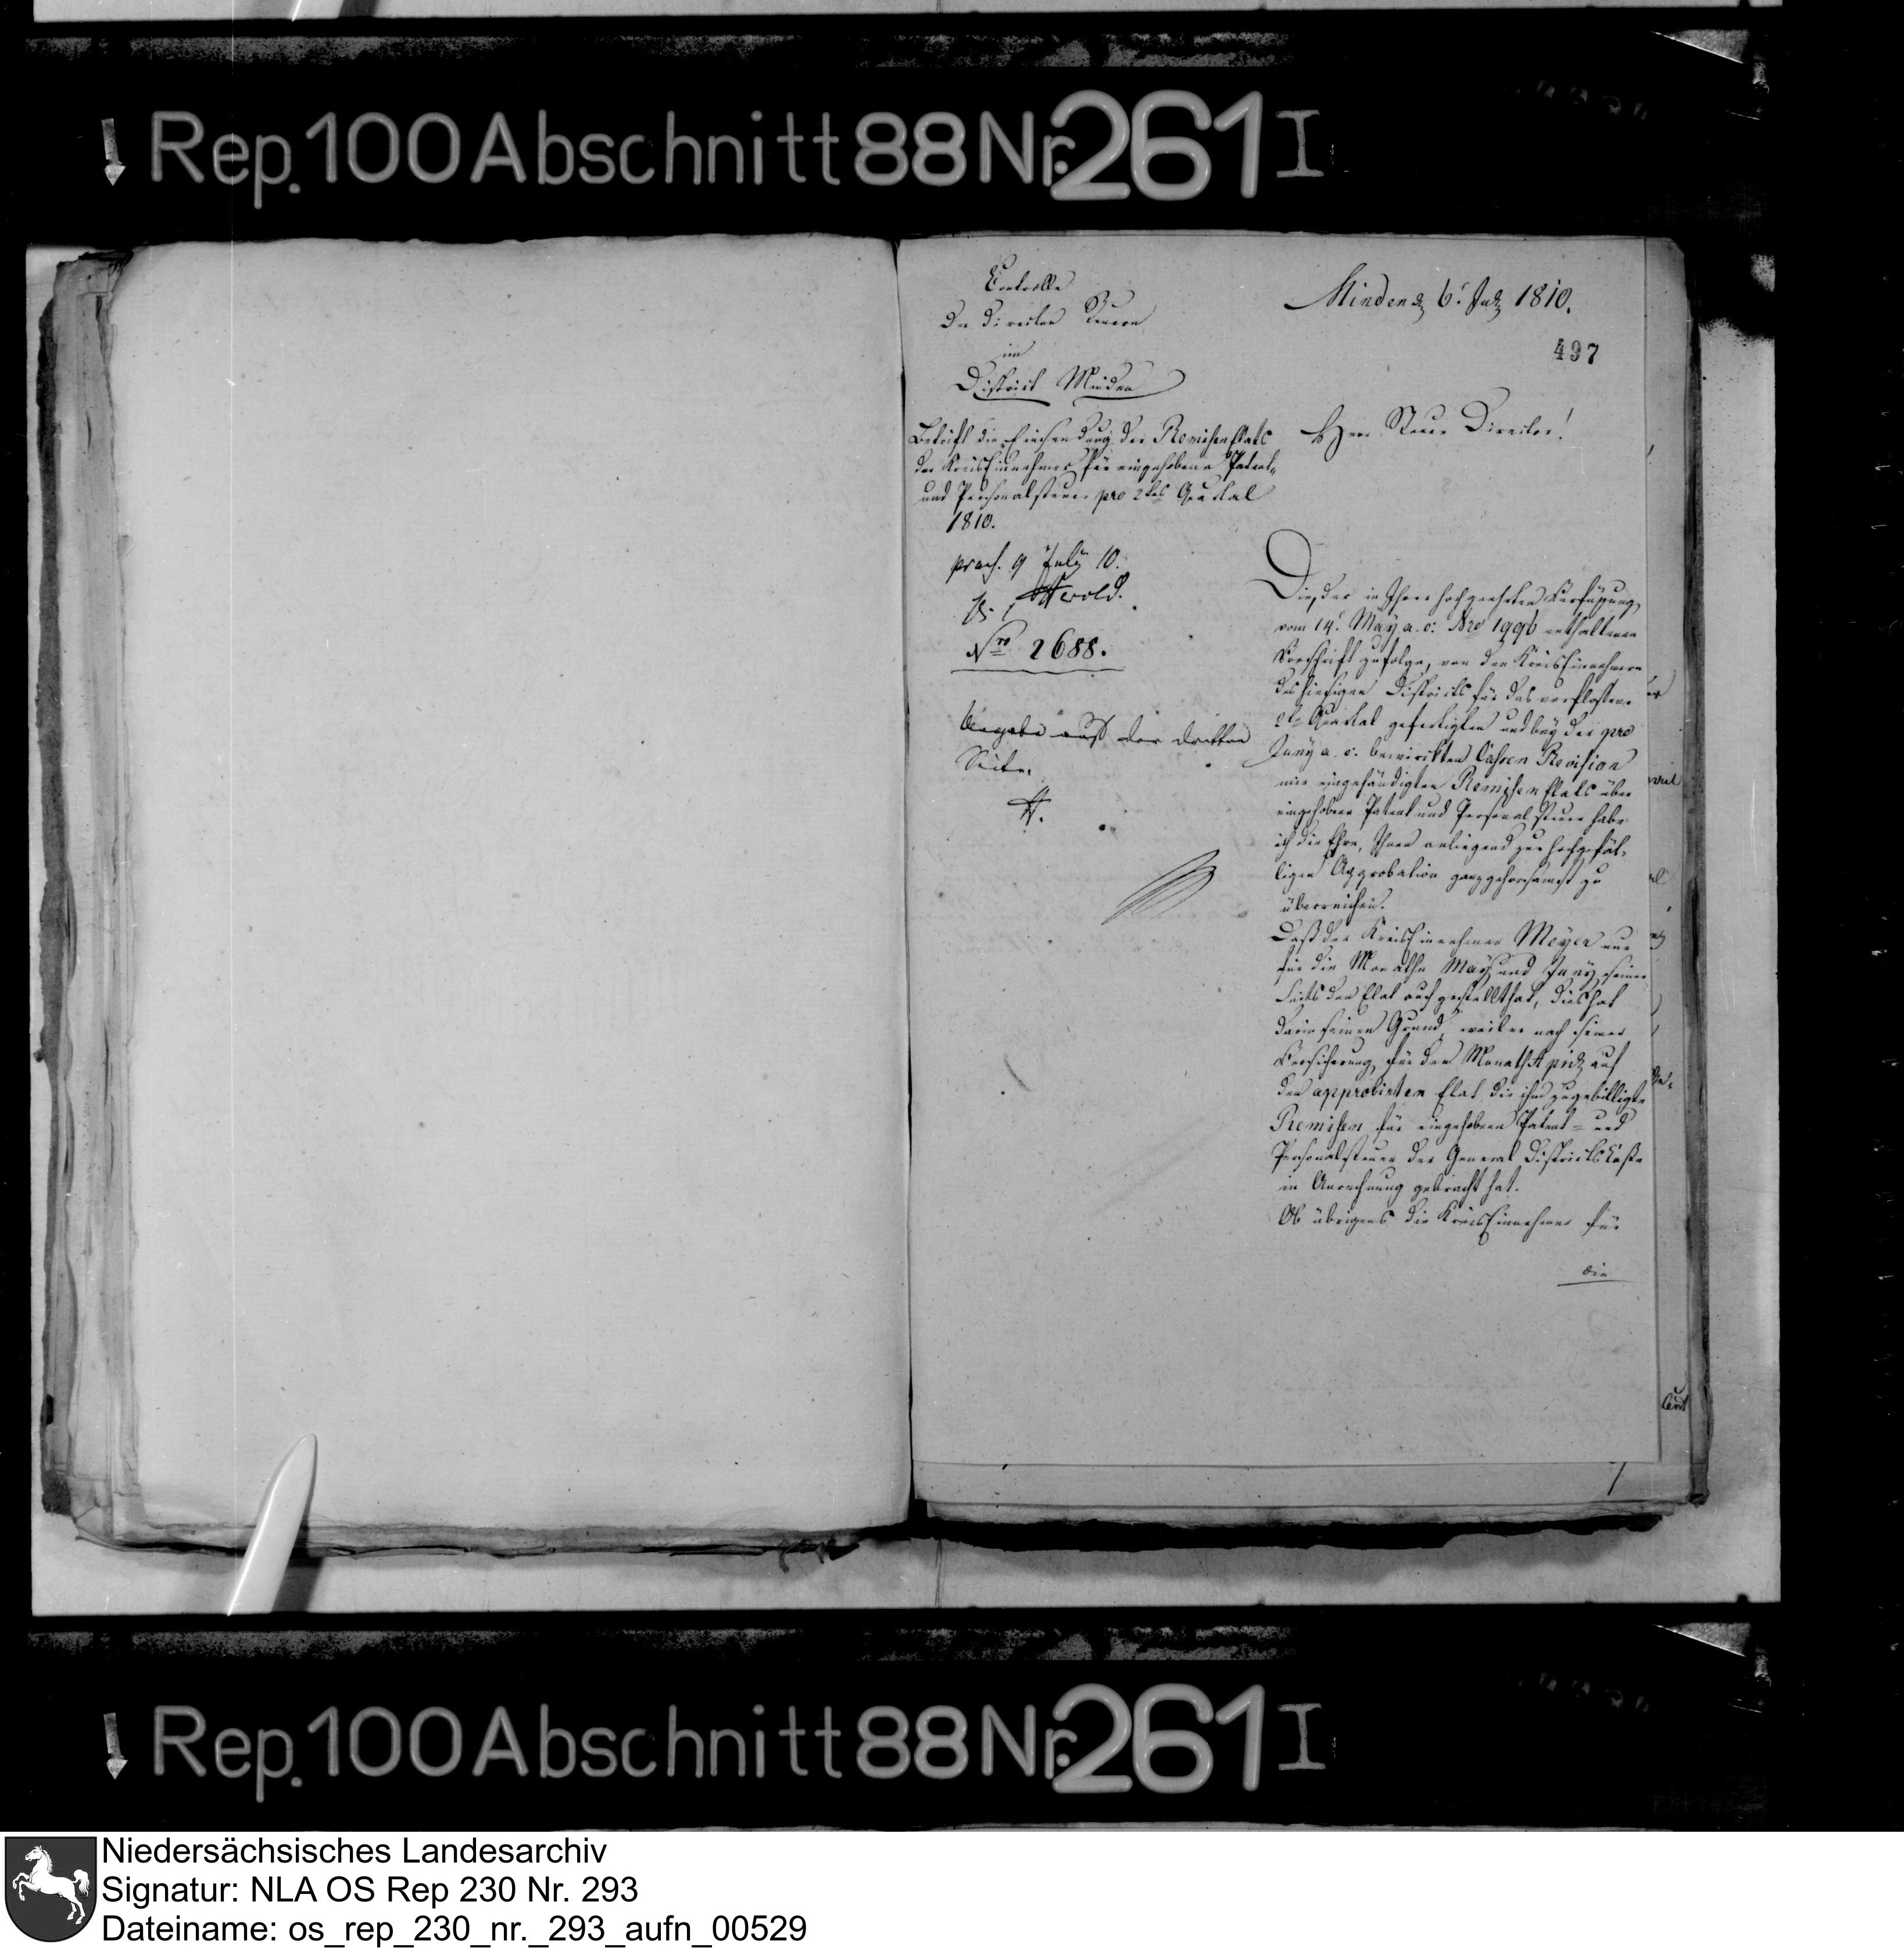 Rep. 100 Abschnitt 88 Nr. 261 I
Controlle
der directen Steuern
im
District Minden
Minden d 6t. July 1810.
497
Betrift die Einsendung der Remisen Etats
der KreisEinnehmer für eingehobene Patent-
und Personalsteuer pro 2tes Quartal
1810.
praes. 9 July 10.
Nro 2688.
Angabe auf der dritten
Seite.
Herr Steuer Director!
Die, der in Ihrer hochgeehrten Verfügung
vom 14t. May a. c. Nro 1996 enthaltenen
Vorschrift zufolge, von den KreisEinnehmern
des hiesigen Districts für das verflossene
2te Quartal gefertigten und bey der pro
Juny a. c. bewirckten Cassen Revision
mir eingehändigten Remisen Etats über
eingehobene Patent und Personal Steuer habe
ich die Ehre, Ihnen anliegend zur hochgefäl-
ligen Approbation ganz gehorsamst zu
überreichen.
Daß der KreisEinnehmer Meyer nur
für die Monathe May und Juny seiner
Seits den Etat aufgestellt hat, dies hat
darin seinen Grund, weil er nach seiner
Versicherung, für den Monath April auf
den approbirten Etat die ihm zugebilligte
Remisen für eingehobene Patent- und
Personalsteuer der General Districts Casse
in Anrechnung gebracht hat.
Ob übrigens die KreisEinnehmer für
die
Rep. 100 Abschnitt 88 Nr. 261 I
Niedersächsisches Landesarchiv
Signatur: NLA OS Rep 230 Nr. 293
Dateiname: os_rep_230_nr._293_aufn_00529